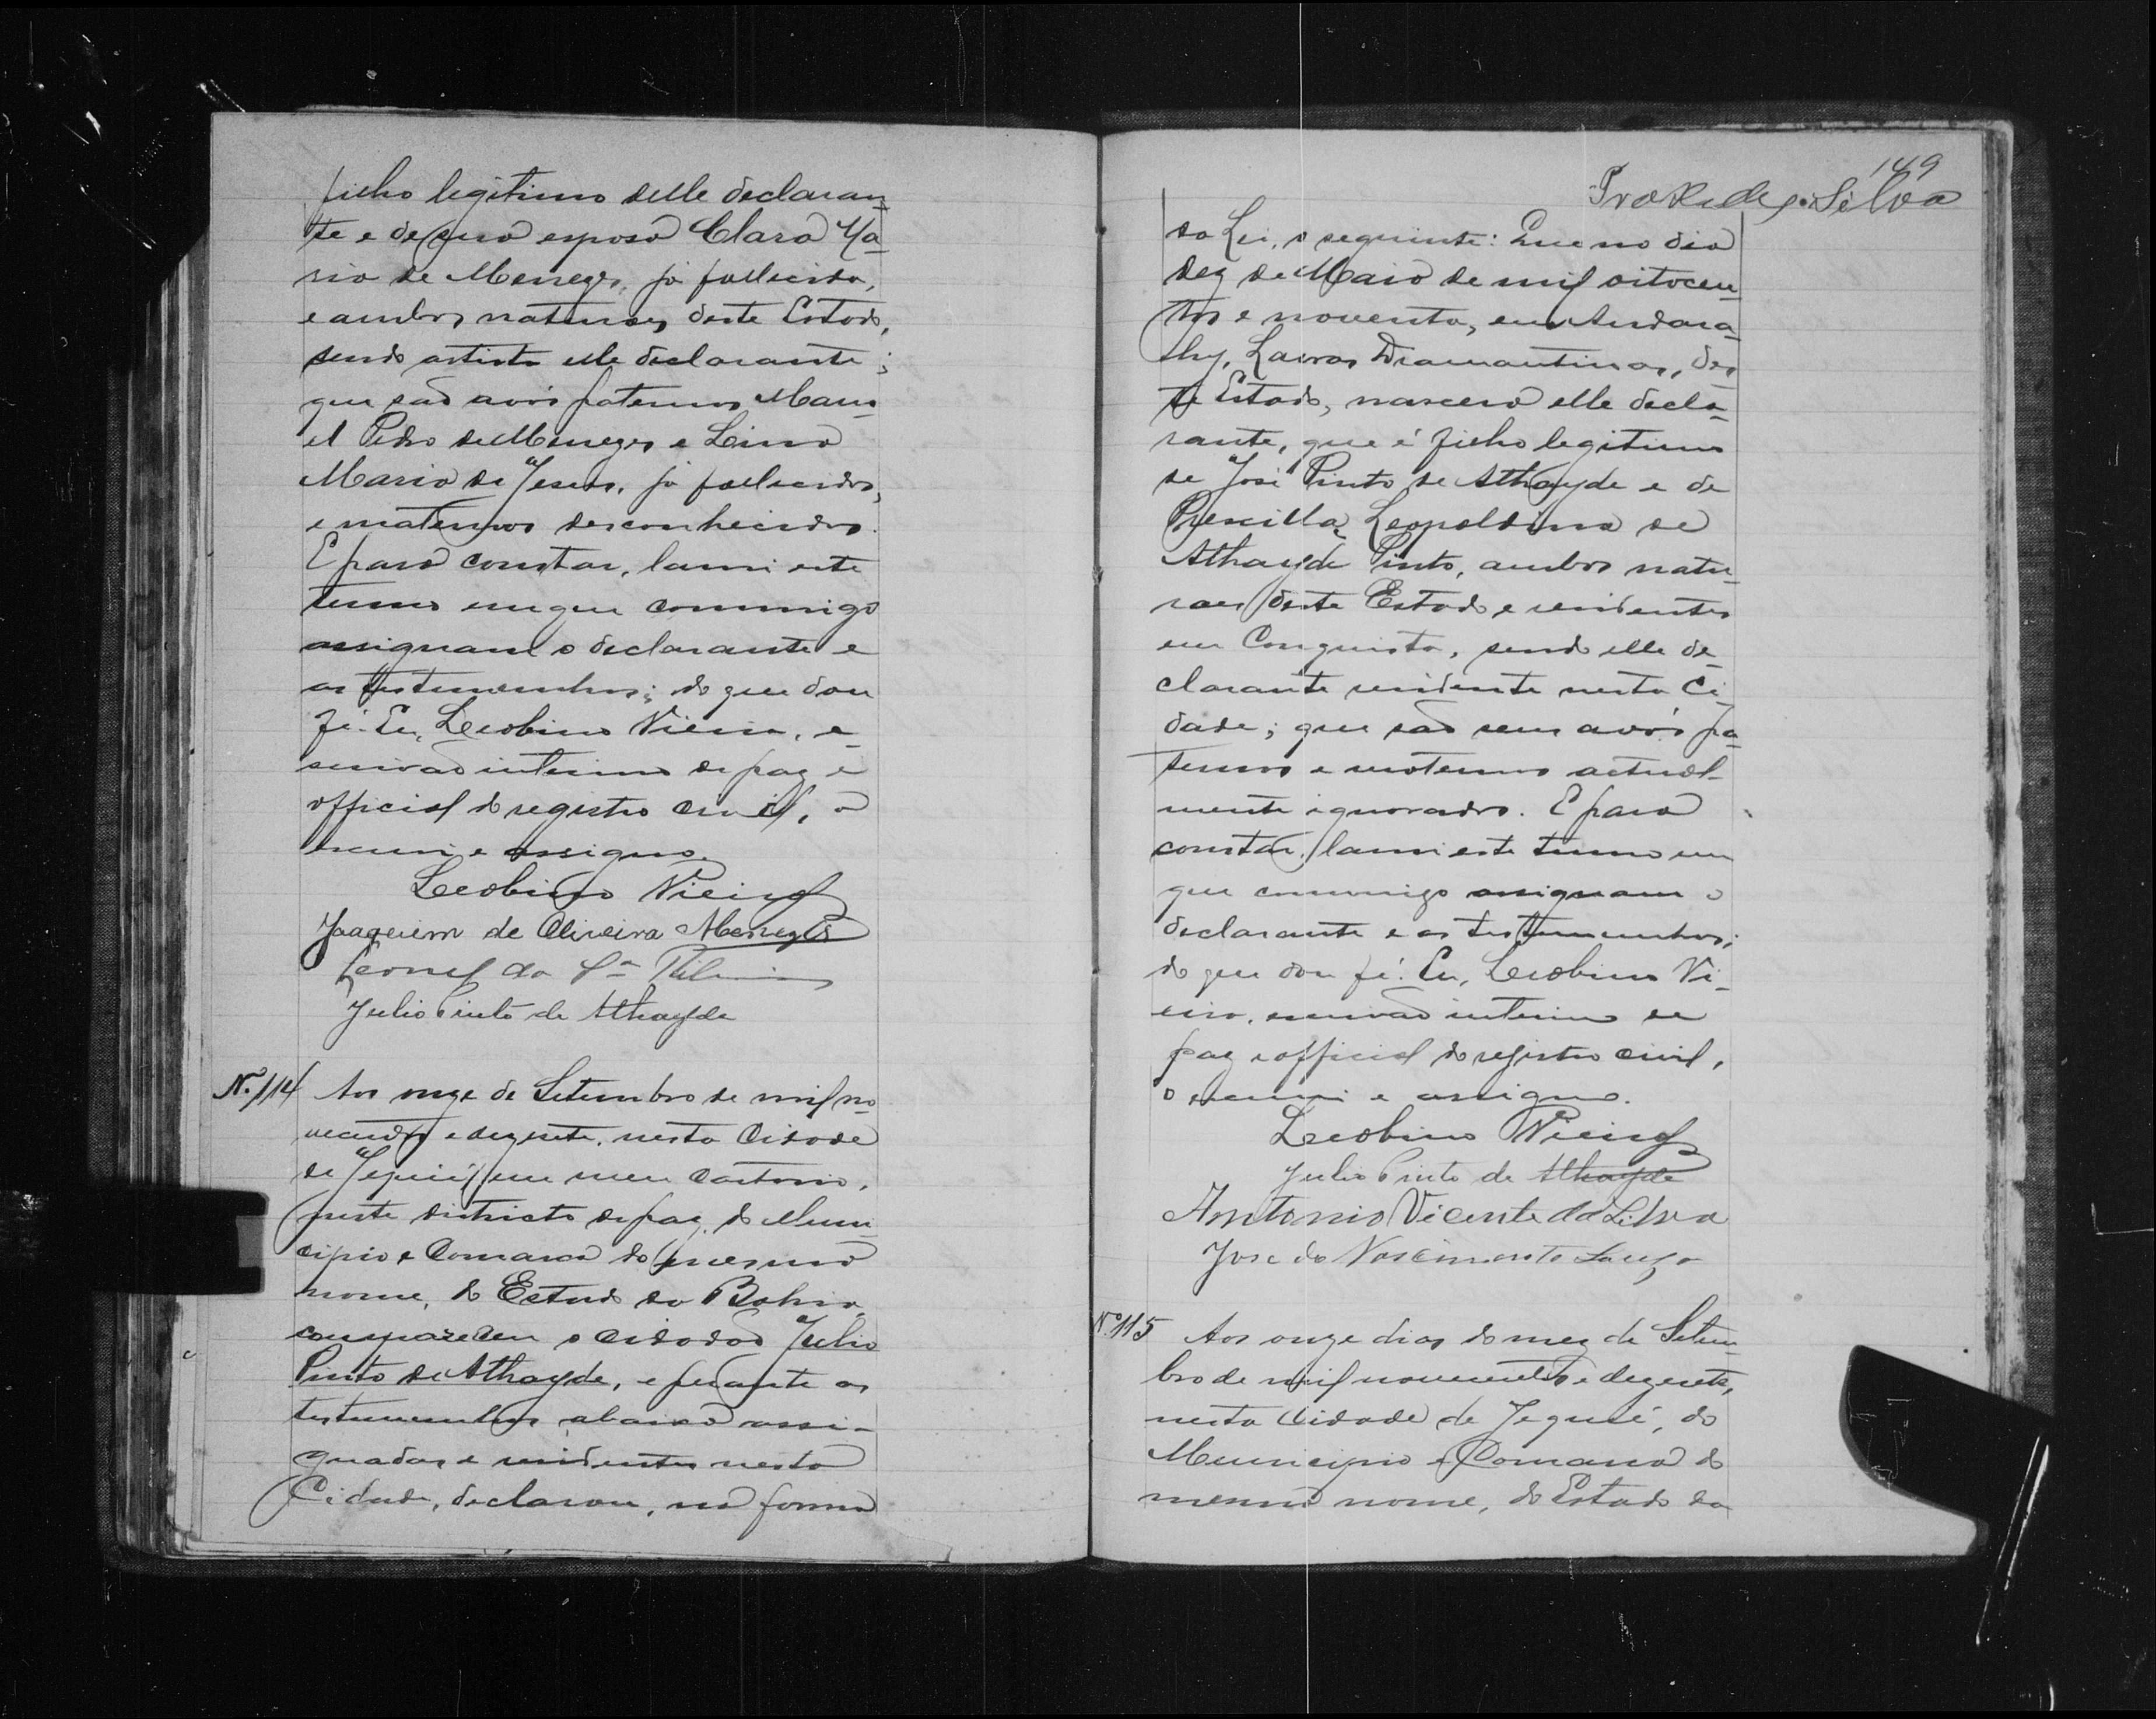 filho legitimo delle declaran-
te e de sua esposa Clara Ma-
ria de Menezes, já fallecida,
e ambos naturaes deste Estado,
sendo artista elle declarante;
que são avós paternos Mano-
el Pedro de Menezes e Lina
Maria de Jesus, já fallecidos,
e maternos desconhecidos.
E para constar, lavrei este
termo em que commigo
assignam o declarante e
as testemunhas; do que dou
fé. Eu, Leobino Vieira, e-
scrivão interino de paz e
official do registro civil, o
escrevi e assigno.
Leobino Vieira
Joaquim de Oliveira Menezes
Leonel da Sª
Julio Pinto de Athayde
Nº 114 Aos onze de Setembro de mil no-
vecentos e dezesete, nesta Cidade
de Jequié, em meu cartorio,
neste districto de paz, do Muni-
cipio e Comarca do mesmo
nome, do Estado da Bahia,
compareceu o cidadão Julio
Pinto de Athayde, e perante as
testemunhas abaixo assi-
gnadas e residentes nesta
Cidade, declarou, na forma
149
Praxedes Silva
da Lei, o seguinte: Que no dia
dez de Maio de mil oitocen-
tos e noventa, em Andara-
hy, Lavras Diamantinas, des
te Estado, nasceu elle decla-
rante, que é filho legitimo
de José Pinto de Athayde e de
Prescilla Leopoldina de
Athayde Pinto, ambos natu-
raes deste Estado e residentes
em Conquista, sendo elle de-
clarante residente nesta Ci-
dade; que são seus avós pa-
ternos e maternos actual-
mente ignorados. E para
constar, lavrei este termo em
que commigo assignam o
declarante e as testemunhas;
do que dou fé. Eu, Leobino Vi-
eira, escrivão interino de
paz e official do registro civil,
o escrevi e assigno.
Leobino Vieira
Julio Pinto de Athayde
Antonio Vicente da Silva
Jose do Nascimento Souza
Nº 115 Aos onze dias do mez de Setem-
bro de mil novecentos e dezesete,
nesta Cidade de Jequié, do
Municipio e Comarca do
mesmo nome, do Estado da